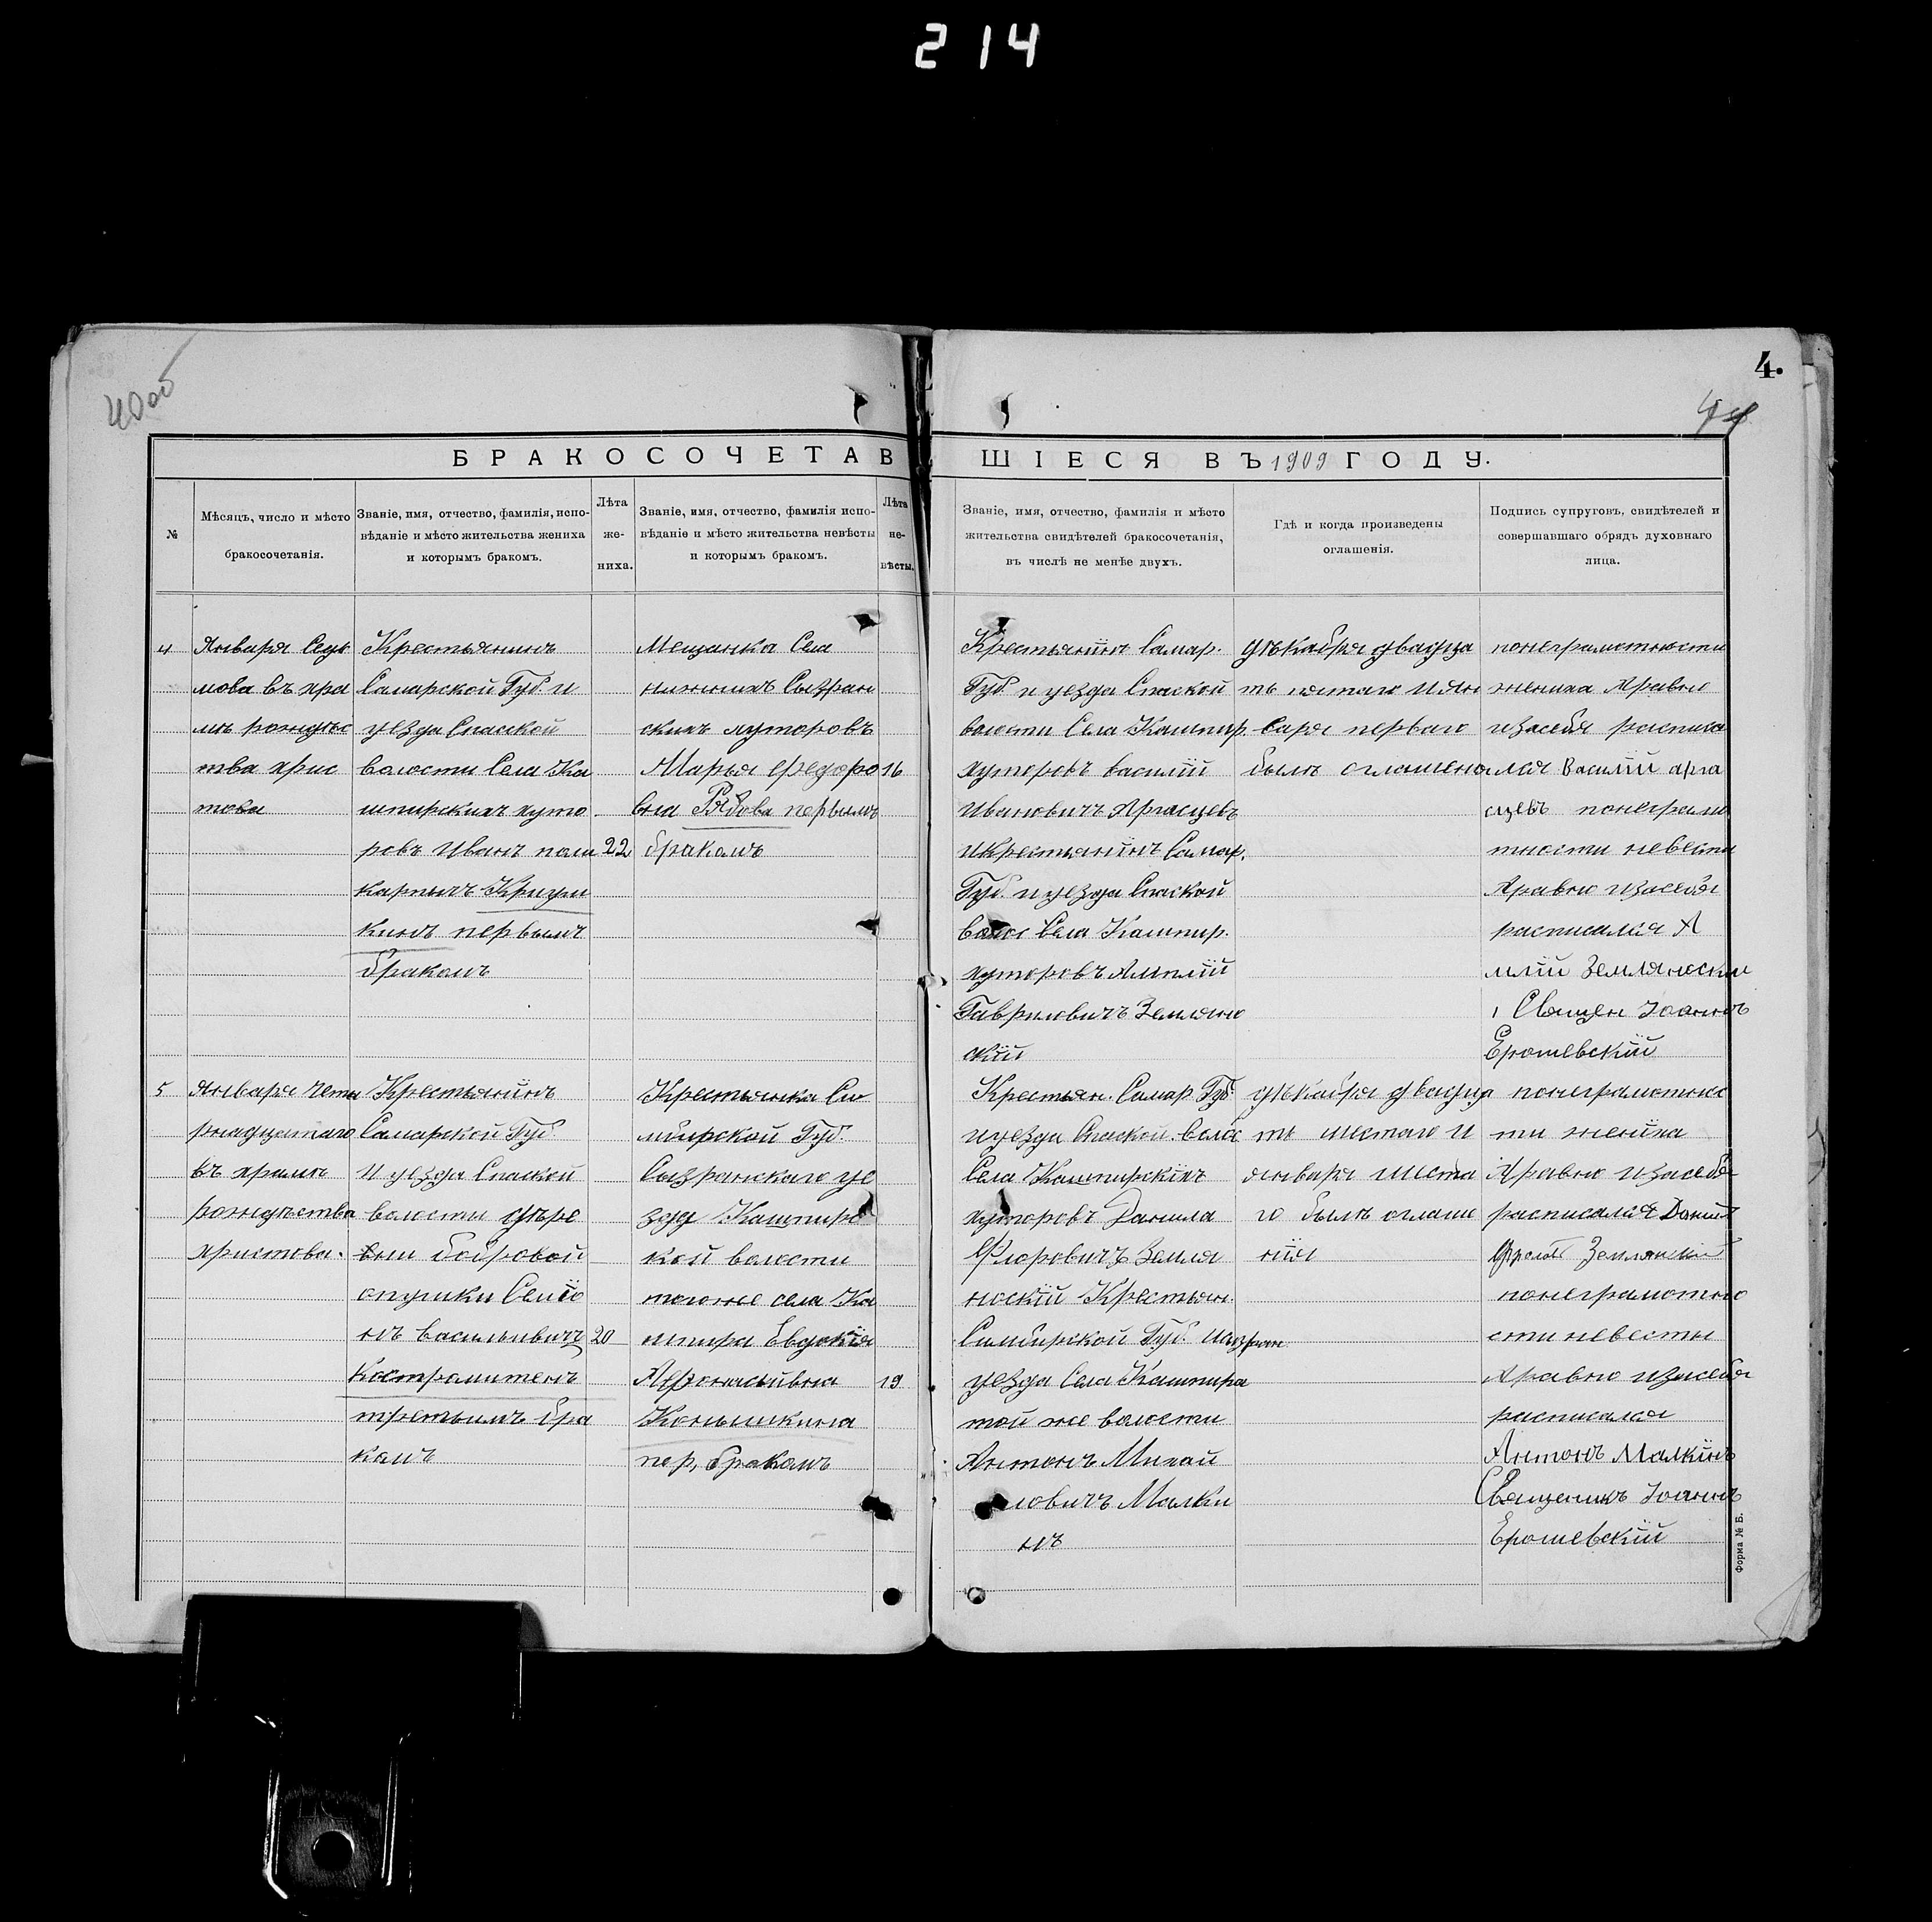 214
4.
БРАКОСОЧЕТАВШІЕСЯ ВЪ 1909 ГОДУ.
№
Мѣсяцъ, число и мѣсто
бракосочетанія.
Званіе, имя, отчество, фамилія, испо-
вѣданіе и мѣсто жительства жениха
и которымъ бракомъ.
Лѣта
же-
ниха.
Званіе, имя, отчество, фамилія испо-
вѣданіе и мѣсто жительства невѣсты
и которымъ бракомъ.
Лѣта
не-
вѣсты.
Званіе, имя, отчество, фамилія и мѣсто
жительства свидѣтелей бракосочетанія,
въ числѣ не менѣе двухъ.
Гдѣ и когда произведены
оглашенія.
Подпись супруговъ, свидѣтелей и
совершавшаго обрядъ духовнаго
лица.
4
Января Седь
мова въ хра
мѣ рождес
тва хрис
това
Крестьянинъ
Самарской Губ. и
уезда Спаской
волости Села Ка
шпирскихъ хуто
ровъ Иванъ поли
карпычъ
кинъ первымъ
бракомъ
22
Мещанка Села
нижнихъ Сызран
скихъ хуторовъ
Марья федоро
вна Рябова первымъ
бракомъ
16
Крестьянинъ Самар.
Губ. и уезда Спаской
волости Села Кашпир.
хуторовъ василій
Ивановичъ
икрестьянинъ Самар.
Губ. и уезда Спаской
волос Села Кашпир.
хуторовъ
Гавриловичъ Землян
скій
дѣкабря двадца
ть пятаго и Ян
варя перваго
былъ оглашен
понеграмотности
жениха Яравно
изасебя расписа
лся Василій арга
сцевъ понеграмо
тности невесты
Яравно изасебя
расписался А
млій Землянский
Священ Іоаннъ
Ерошевскій
5
Января четы
рнадцатаго
въ храмѣ
рождества
христова.
Крестьянинъ
Самарской Губ.
И уезда Спаской
волости дѣре
вни бобровой
опушки Семіо
нъ васильивичъ
Костромитенъ
третьимъ бра
комъ
20
Крестьянка Си
мбирской Губ.
Сызранскаго уе
зда Кашпирс
кой волости
тогоже села Ка
шпира Евдокія
Афонасьивна
Конышкина
пер, бракомъ
19
Крестьян. Самар. Губ.
иуезда Спаской. волос
Села Кашпирскихъ
хуторовъ Данила
Флоровичъ Земля
нскій Крестьян.
Симбирской Губ. исызран
уезда Села Кашпира
той же волости
Антонъ Михай
ловичъ Малки
нъ
дѣкабря двадца
ть шестаго И
января шеста
го былъ оглаше
нія
понеграмотнос
ти женйха
Яравно изасебя
расписался Данил
Землянский
понеграмотно
сти невесты
Яравно изасебя
расписался
Антонъ Малкинъ
Священикъ Іоаннъ
Ерошевскій
Форма № Б.